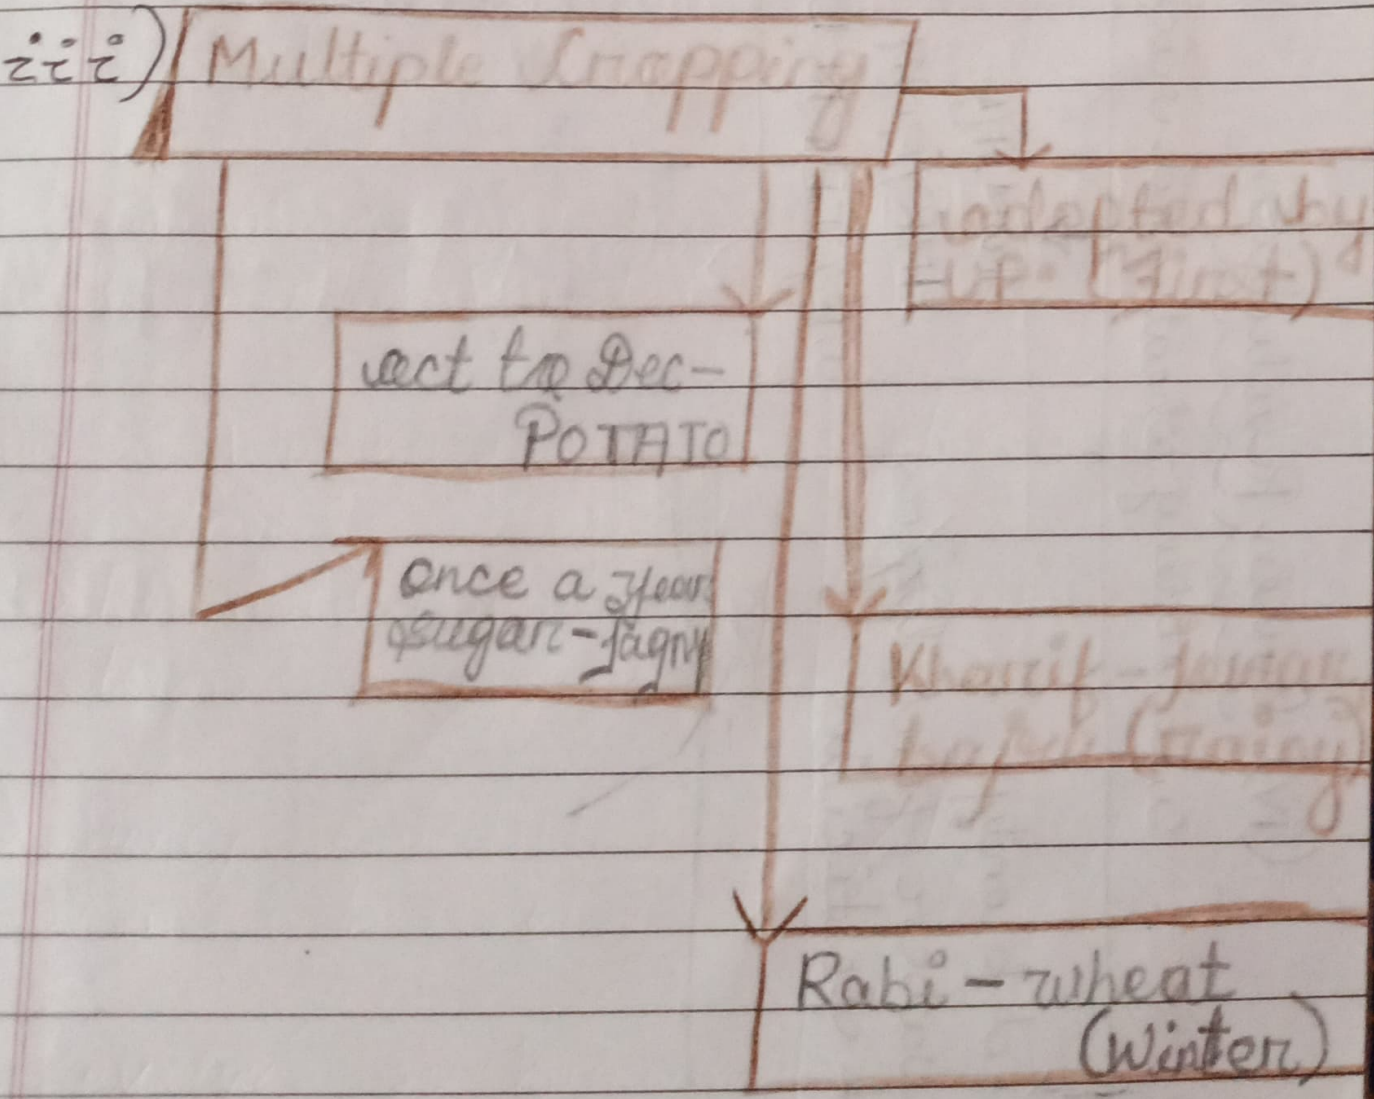 iii) Multiple Cropping
adopted by
UP. (First)
oct to Dec-
POTATO
once a year
sugar-Jagry
Kharif - Jowar
bajra (rainy)
Rabi - wheat
(winter)